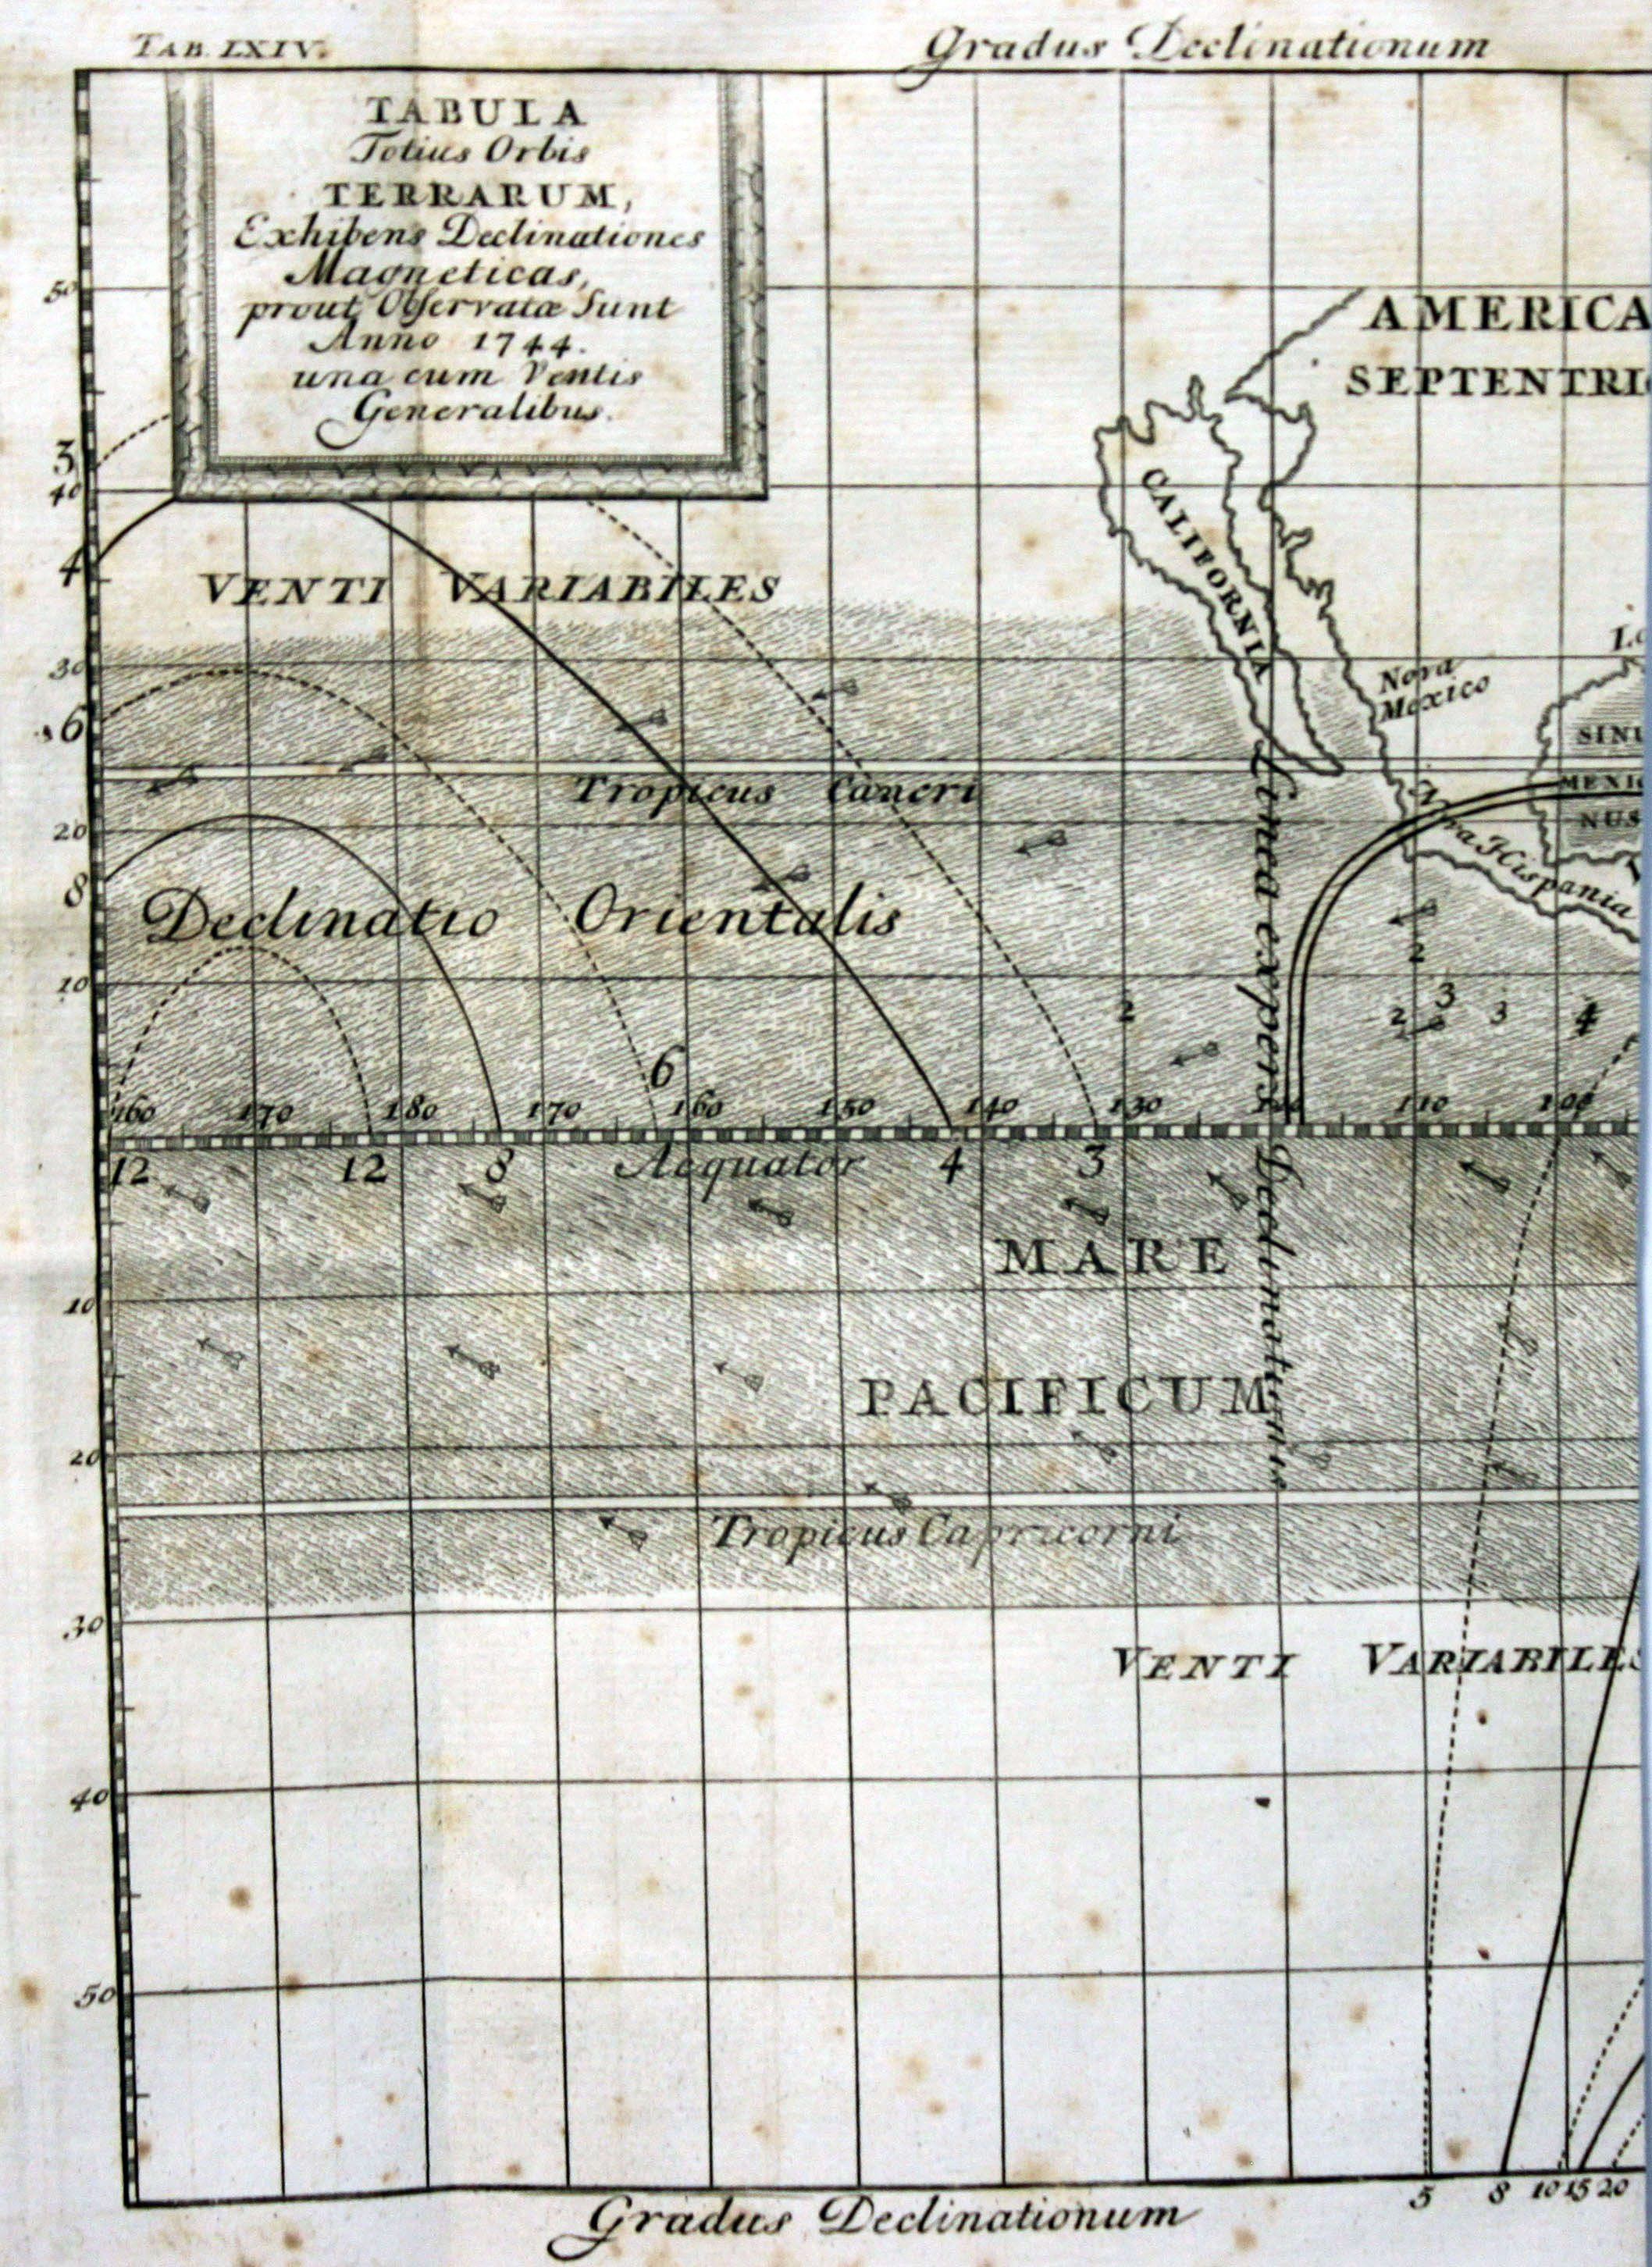 TAB. LXIV.
Gradus Declinationum
TABULA
Totius Orbis
TERRARUM,
Exhibens Declinationes
Magneticas,
prout Observatæ Sunt
Anno 1744.
una cum Ventis
Generalibus.
50
AMERICA
SEPTENTRI
3
40
4
VENTI VARIABILES
CALIFORNIA
30
Nova
Mexico
6
SINU
Tropicus Cancri
MEXIC
20
NUS
8
Hispania
Declinatio Orientalis
Linea expers Declinationis
2
10
2
3
2
3
4
6
160 170 180 170 160 150 140 130 110 100
12 12 8 Aequator 4 3
MARE
10
PACIFICUM
20
Tropicus Capricorni
30
VENTI VARIABILES
40
50
5 8 10 15 20
Gradus Declinationum